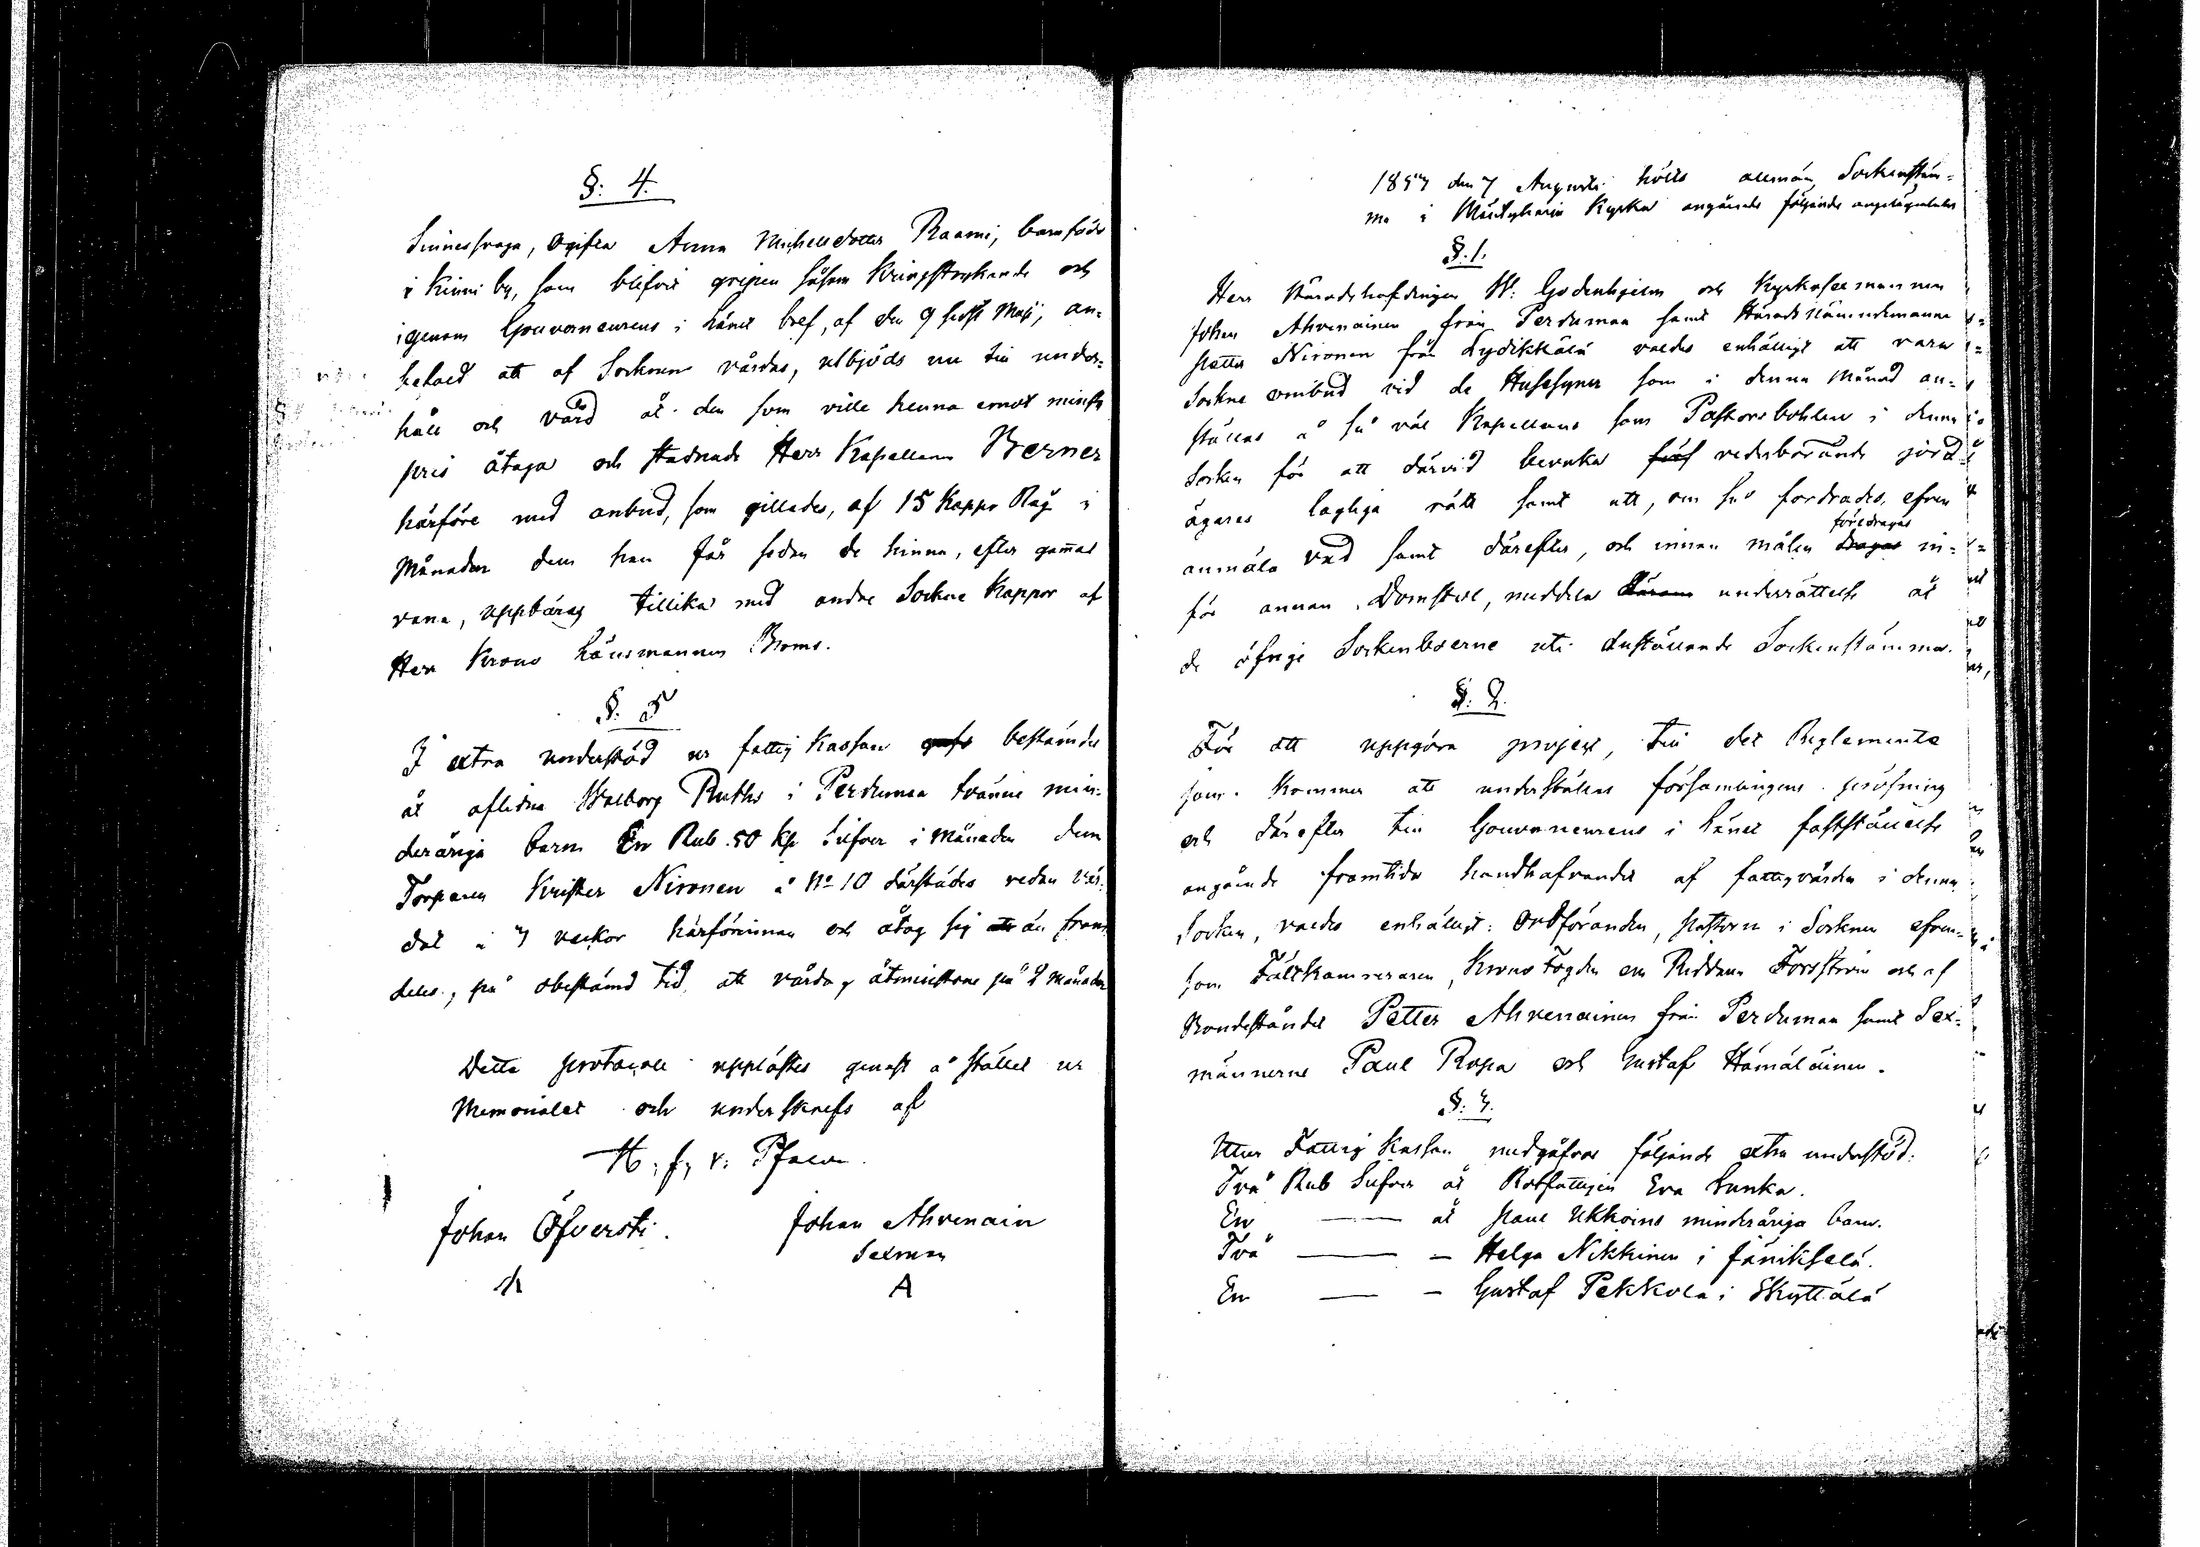 §: 4.
Sinnessvaga, Ogifta Anna Michelsdotter Raami, barnföde
i Kinni by, som blifvit gripen såsom kringstrykande och
igenom Gouverneurens i Länet bref, af den 9 sist Maji, an-
befald att af Socknen vårdas, utbjöds nu till under-
håll och vård åt den som ville henne emot minsta
pris åtaga och stadnade Herr Kapellanen Berner
härföre med anbud, som gillades, af 15 Kappr Råg i
Månaden dem han får sedan de hinna, efter gamal
vana, uppbäras tillika med andre Sockne Kappor af
Herr Krono Länsmannen Broms.
§. 5
I extra understöd ur fattig Kassan bestämdes
åt aflidne Walborg Ruths i Perdumaa tvänne min-
deråriga barn En Rub. 50 kp Silfver i Månaden dem
Torparen Krister Nironen å No 10 därstädes redan vår-
dat i 7 veckor härförinnan och åtog sig än fram-
deles, på obestämd tid att vårda, åtminstone på 2 månader
Detta protocoll upplästes genast å stället ur
Memorialet och underskrefs af
H. f. v. Pfaler.
Johan Öfversti. Johan Ahvenain
Sexman
A
1847 den 7 Augusti hölls allmän Sockenstäm-
ma i Mäntyharju Kyrka angående följande angelägenheter
§. 1.
Herr Häradshöfdingen W: Godenhjelm och Kyrkosexmannen
Johan Ahvenainen från Perdumaa samt Häradsnämndemannen
Petter Nironen från Lydikkälä valdes enhälligt att vara
Sockne ombud vid de Husesyner som i denna Månad an-
ställas å så väl Kapellans som Pastorsbohlen i denna
Socken för att därvid bevaka vederbörande jord-
ägares lagliga rätt samt att, om så fordrades, äfven
anmäla vad samt därefter, och innan målen föredragas in-
för annan Domstol, meddela underrättelse åt
de öfrige Sockenboerne uti anställande Sockenstämma.
§. 2.
För att uppgöra project, till det Reglemente
som kommer att underställas församlingens pröfning
och därefter till Gouverneurens i Länet fastställelse
angående framtida handhafvandet af fattigvården i denna
Socken, valdes enhälligt: Ordföranden, pastorn i Socknen äfven-
som Fältkamreraren, Krono Fogden och Riddaren Forsström och af
Bondeståndet Petter Ahvenainen från Perdumaa samt Sex-
männerne Paul Ropa och Gustaf Hämäläinen.
§. 3.
Utur Fattig Kassan medgåfvos följande extra understöd.
Två Rub Silfver åt Rotfattigen Eva Lunka.
En —— åt Paul Ukkoins minderåriga barn.
Två —— — Helga Nikkinen i Jänikselä.
En —— — Gustaf Pekkola i Skyttälä